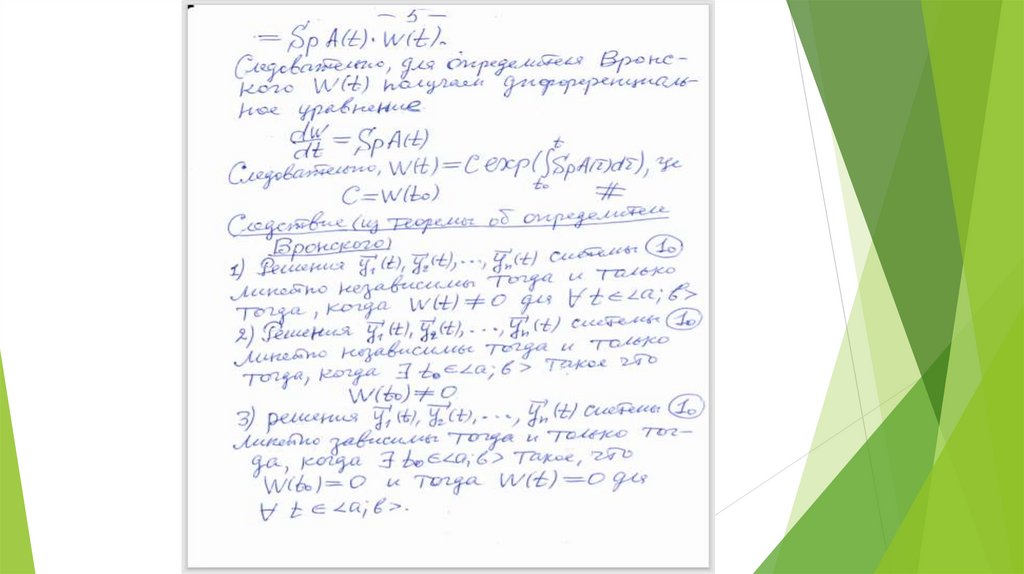 – 5 –
= Sp A(t)·W(t).
Следовательно, для определителя Вронс-
кого W(t) получаем дифференциаль-
ное уравнение
dW/dt = Sp A(t)
Следовательно, W(t) = C exp(∫_{t₀}^{t} Sp A(τ)dτ), где
C = W(t₀) #
Следствие (из теоремы об определителе
Вронского)
1) Решения y⃗₁(t), y⃗₂(t), ..., y⃗ₙ(t) системы (1₀)
линейно независимы тогда и только
тогда, когда W(t) ≠ 0 для ∀ t ∈ <a; b>
2) Решения y⃗₁(t), y⃗₂(t), ..., y⃗ₙ(t) системы (1₀)
линейно независимы тогда и только
тогда, когда ∃ t₀ ∈ <a; b> такое что
W(t₀) ≠ 0
3) решения y⃗₁(t), y⃗₂(t), ..., y⃗ₙ(t) системы (1₀)
линейно зависимы тогда и только тог-
да, когда ∃ t₀ ∈ <a; b> такое, что
W(t₀) = 0 и тогда W(t) = 0 для
∀ t ∈ <a; b>.